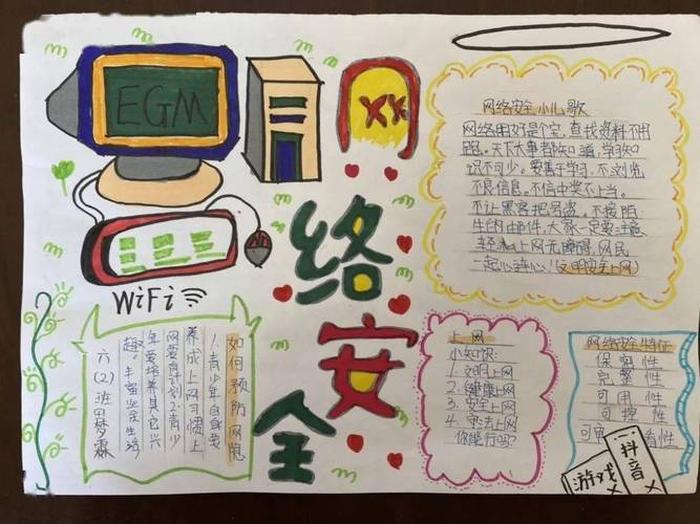 EGM
WiFi
网
络
安
全
网络安全小儿歌
网络用好是个宝,查找资料不用
跑。天下大事都知道,学习知
识不可少。要善于学习,不浏览
不良信息。不信中奖不上当。
不让黑客把号盗。不接陌
生的邮件,大家一定要注意
上网无障碍,网民
一起心连心!(文明安全上网)
如何预防网
1.青少年自身要
养成上网习惯上
网要自计划2.青少
年要培养其它兴
趣。丰富业余生活
六(2)班
上网
小知识:
1.文明上网
2.健康上网
3.安全上网
4.守法上网
你能行吗?
网络安全特征
保密性
完整性
可用性
可控性
可审 性
游戏×
抖音×